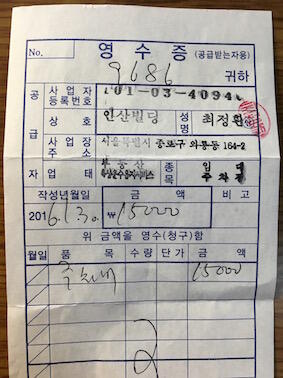 No.
영 수 증 (공급받는자용)
9686 귀하
공급자
사업자등록번호 101-03-4094
상호 인산빌딩 성명 최정환
사업장주소 서울특별시 중로구 의룡동 164-2
업태 부동산 종목 임대
작성년월일 금 액 비 고
2016. ₩15000
위 금액을 영수(청구)함
월일 품 목 수량 단가 금 액
15000